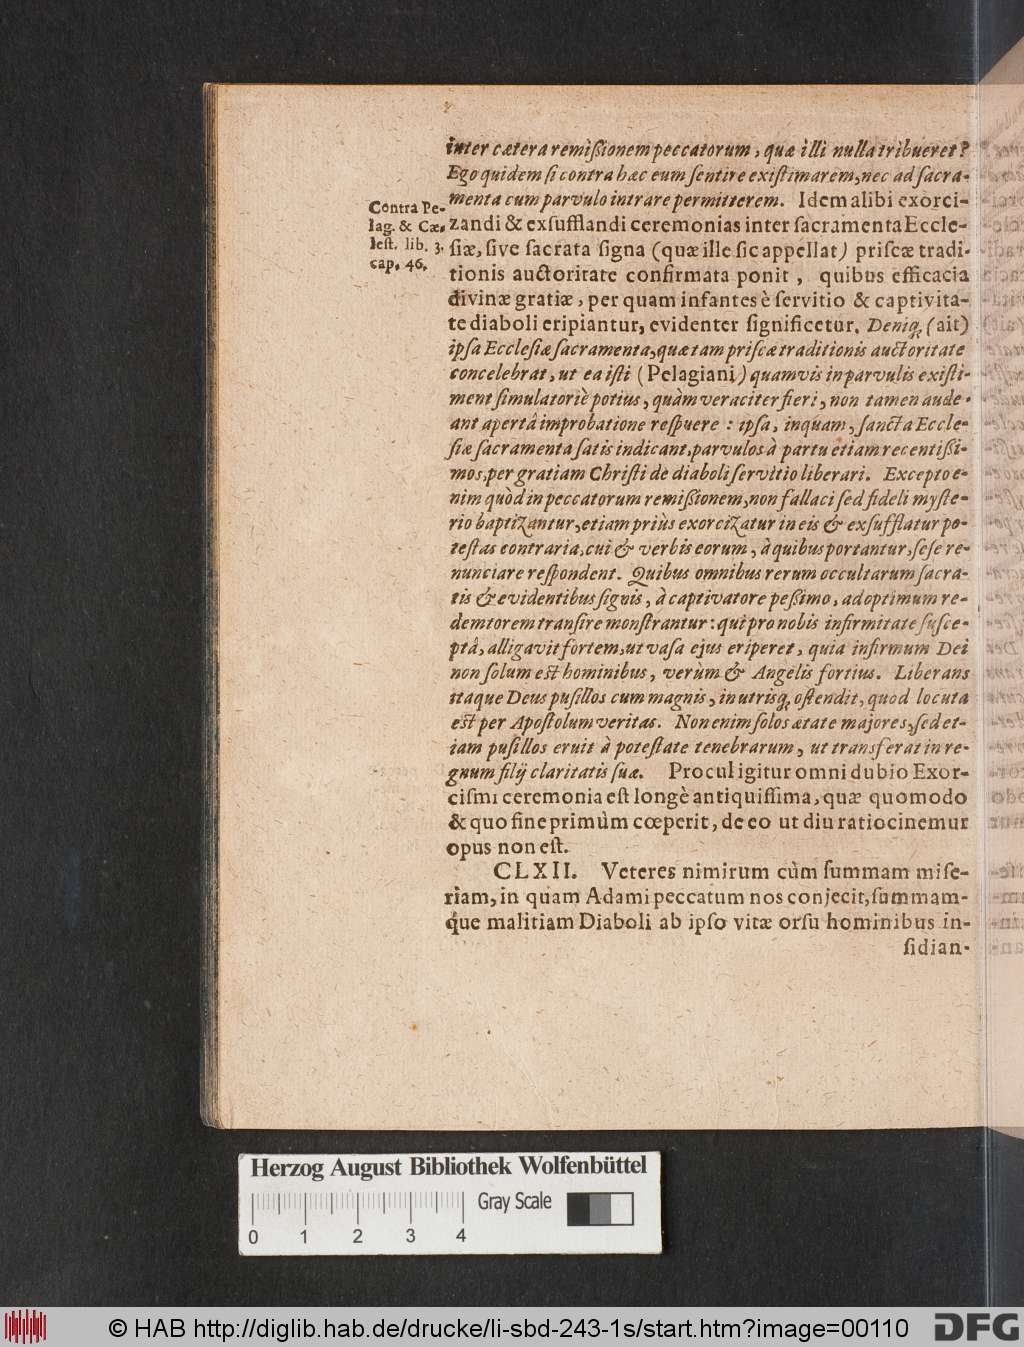 inter cætera remißionem peccatorum, quæ illi nulla tribueret?
Ego quidem ſi contra hæc eum ſentire exiſtimarem, nec ad ſacra-
menta cum parvulo intrare permitterem. Idem alibi exorci-
zandi & exſufflandi ceremonias inter ſacramenta Eccle-
ſiæ, ſive ſacrata ſigna (quæ ille ſic appellat) priſcæ tradi-
tionis auctoritate confirmata ponit, quibus efficacia
divinæ gratiæ, per quam infantes è ſervitio & captivita-
te diaboli eripiantur, evidenter ſignificetur. Deniq; (ait)
ipſa Eccleſiæ ſacramenta, quæ tam priſcæ traditionis auctoritate
concelebrat, ut ea iſti (Pelagiani) quamvis in parvulis exiſti-
ment ſimulatoriè potius, quàm veraciter fieri, non tamen aude-
ant apertâ improbatione reſpuere: ipſa, inquam, ſancta Eccle-
ſiæ ſacramenta ſatis indicant, parvulos à partu etiam recentißi-
mos, per gratiam Chriſti de diaboli ſervitio liberari. Excepto e-
nim quòd in peccatorum remißionem, non fallaci ſed fideli myſte-
rio baptizantur, etiam priùs exorcizatur in eis & exſufflatur po-
teſtas contraria, cui & verbis eorum, à quibus portantur, ſeſe re-
nunciare reſpondent. Quibus omnibus rerum occultarum ſacra-
tis & evidentibus ſignis, à captivatore peßimo, ad optimum re-
demtorem tranſire monſtrantur: qui pro nobis infirmitate ſuſce-
ptâ, alligavit fortem, ut vaſa ejus eriperet, quia infirmum Dei
non ſolum eſt hominibus, verùm & Angelis fortius. Liberans
itaque Deus puſillos cum magnis, in utrisq; oſtendit, quod locuta
eſt per Apoſtolum veritas. Non enim ſolos ætate majores, ſed et-
iam puſillos eruit à poteſtate tenebrarum, ut transferat in re-
gnum filij claritatis ſuæ. Procul igitur omni dubio Exor-
ciſmi ceremonia eſt longè antiquiſſima, quæ quomodo
& quo fine primùm cœperit, de eo ut diu ratiocinemur
opus non eſt.
CLXII. Veteres nimirum cùm ſummam miſe-
riam, in quam Adami peccatum nos conjecit, ſummam-
que malitiam Diaboli ab ipſo vitæ orſu hominibus in-
ſidian-
Contra Pe-
lag. & Cæ-
leſt. lib. 3.
cap. 46.
Herzog August Bibliothek Wolfenbüttel
Gray Scale
0 1 2 3 4
© HAB http://diglib.hab.de/drucke/li-sbd-243-1s/start.htm?image=00110
DFG